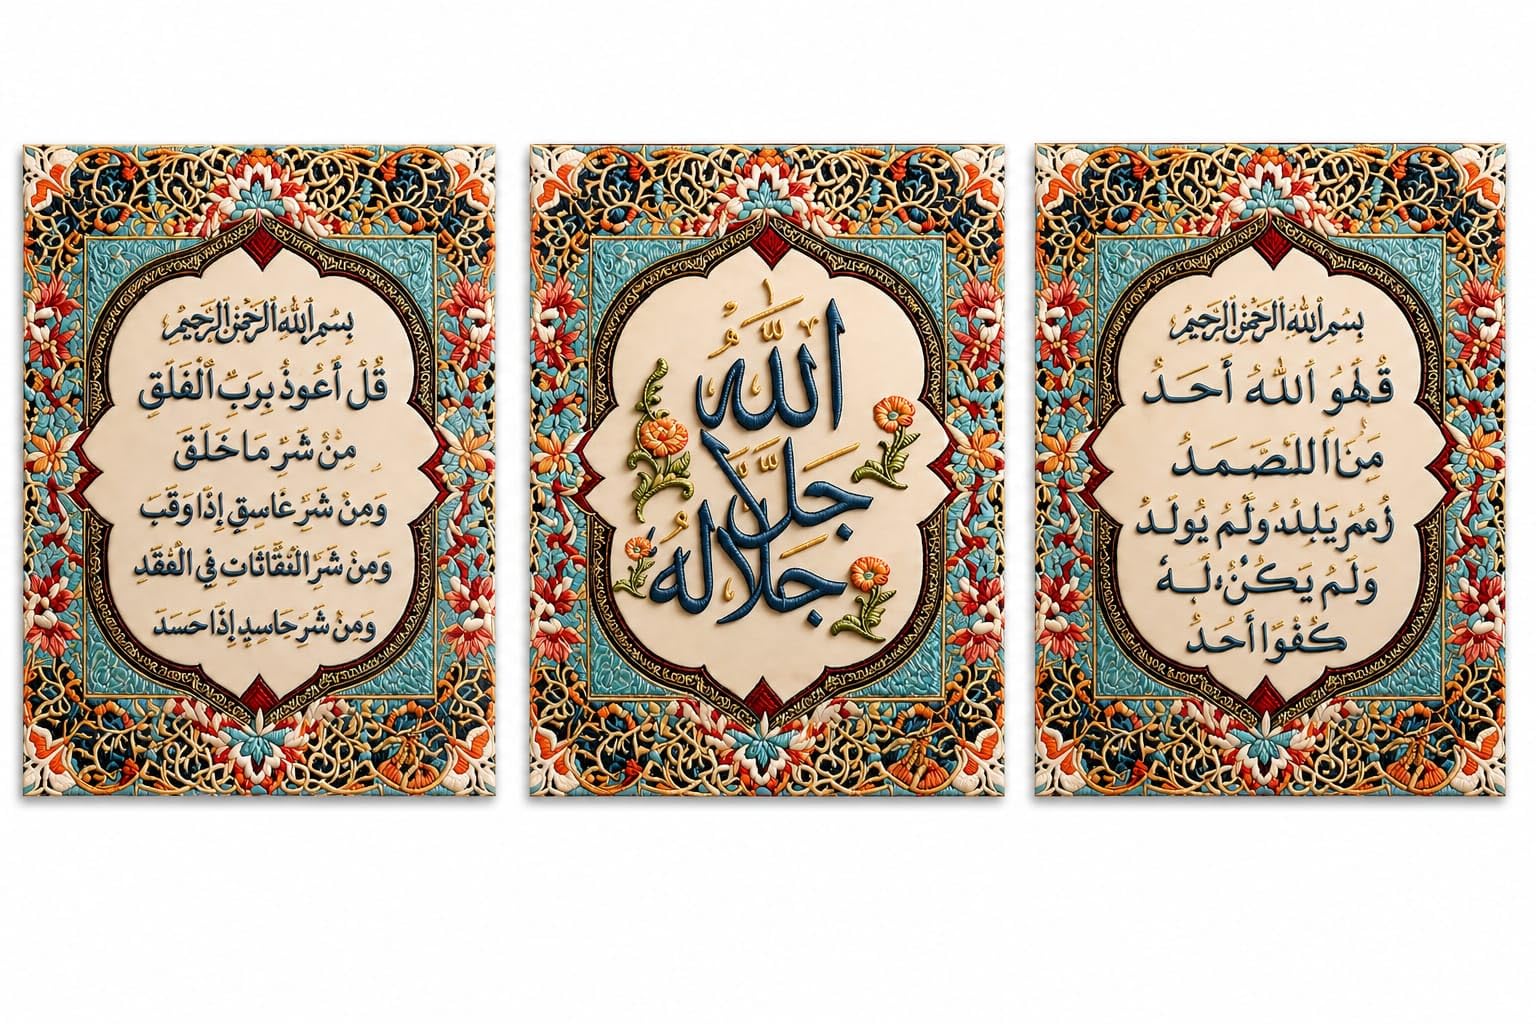 بِسْمِ اللهِ الرَّحْمٰنِ الرَّحِيْمِ
قُلْ أَعُوذُ بِرَبِّ الْفَلَقِ
مِنْ شَرِّ مَا خَلَقَ
وَمِنْ شَرِّ غَاسِقٍ إِذَا وَقَبَ
وَمِنْ شَرِّ النَّفَّاثَاتِ فِي الْفُقَدِ
وَمِنْ شَرِّ حَاسِدٍ إِذَا حَسَدَ
اللّٰهُ
جلَّ
جلاله
بِسْمِ اللهِ الرَّحْمٰنِ الرَّحِيْمِ
قُهُوَ اللهُ أَحَدُ
مَنَ اللصَمَدُ
وَلَمْ يُولَدُ
وَلَمْ يَكُنُ لَهُ
كُفُوًا أَحَدُ